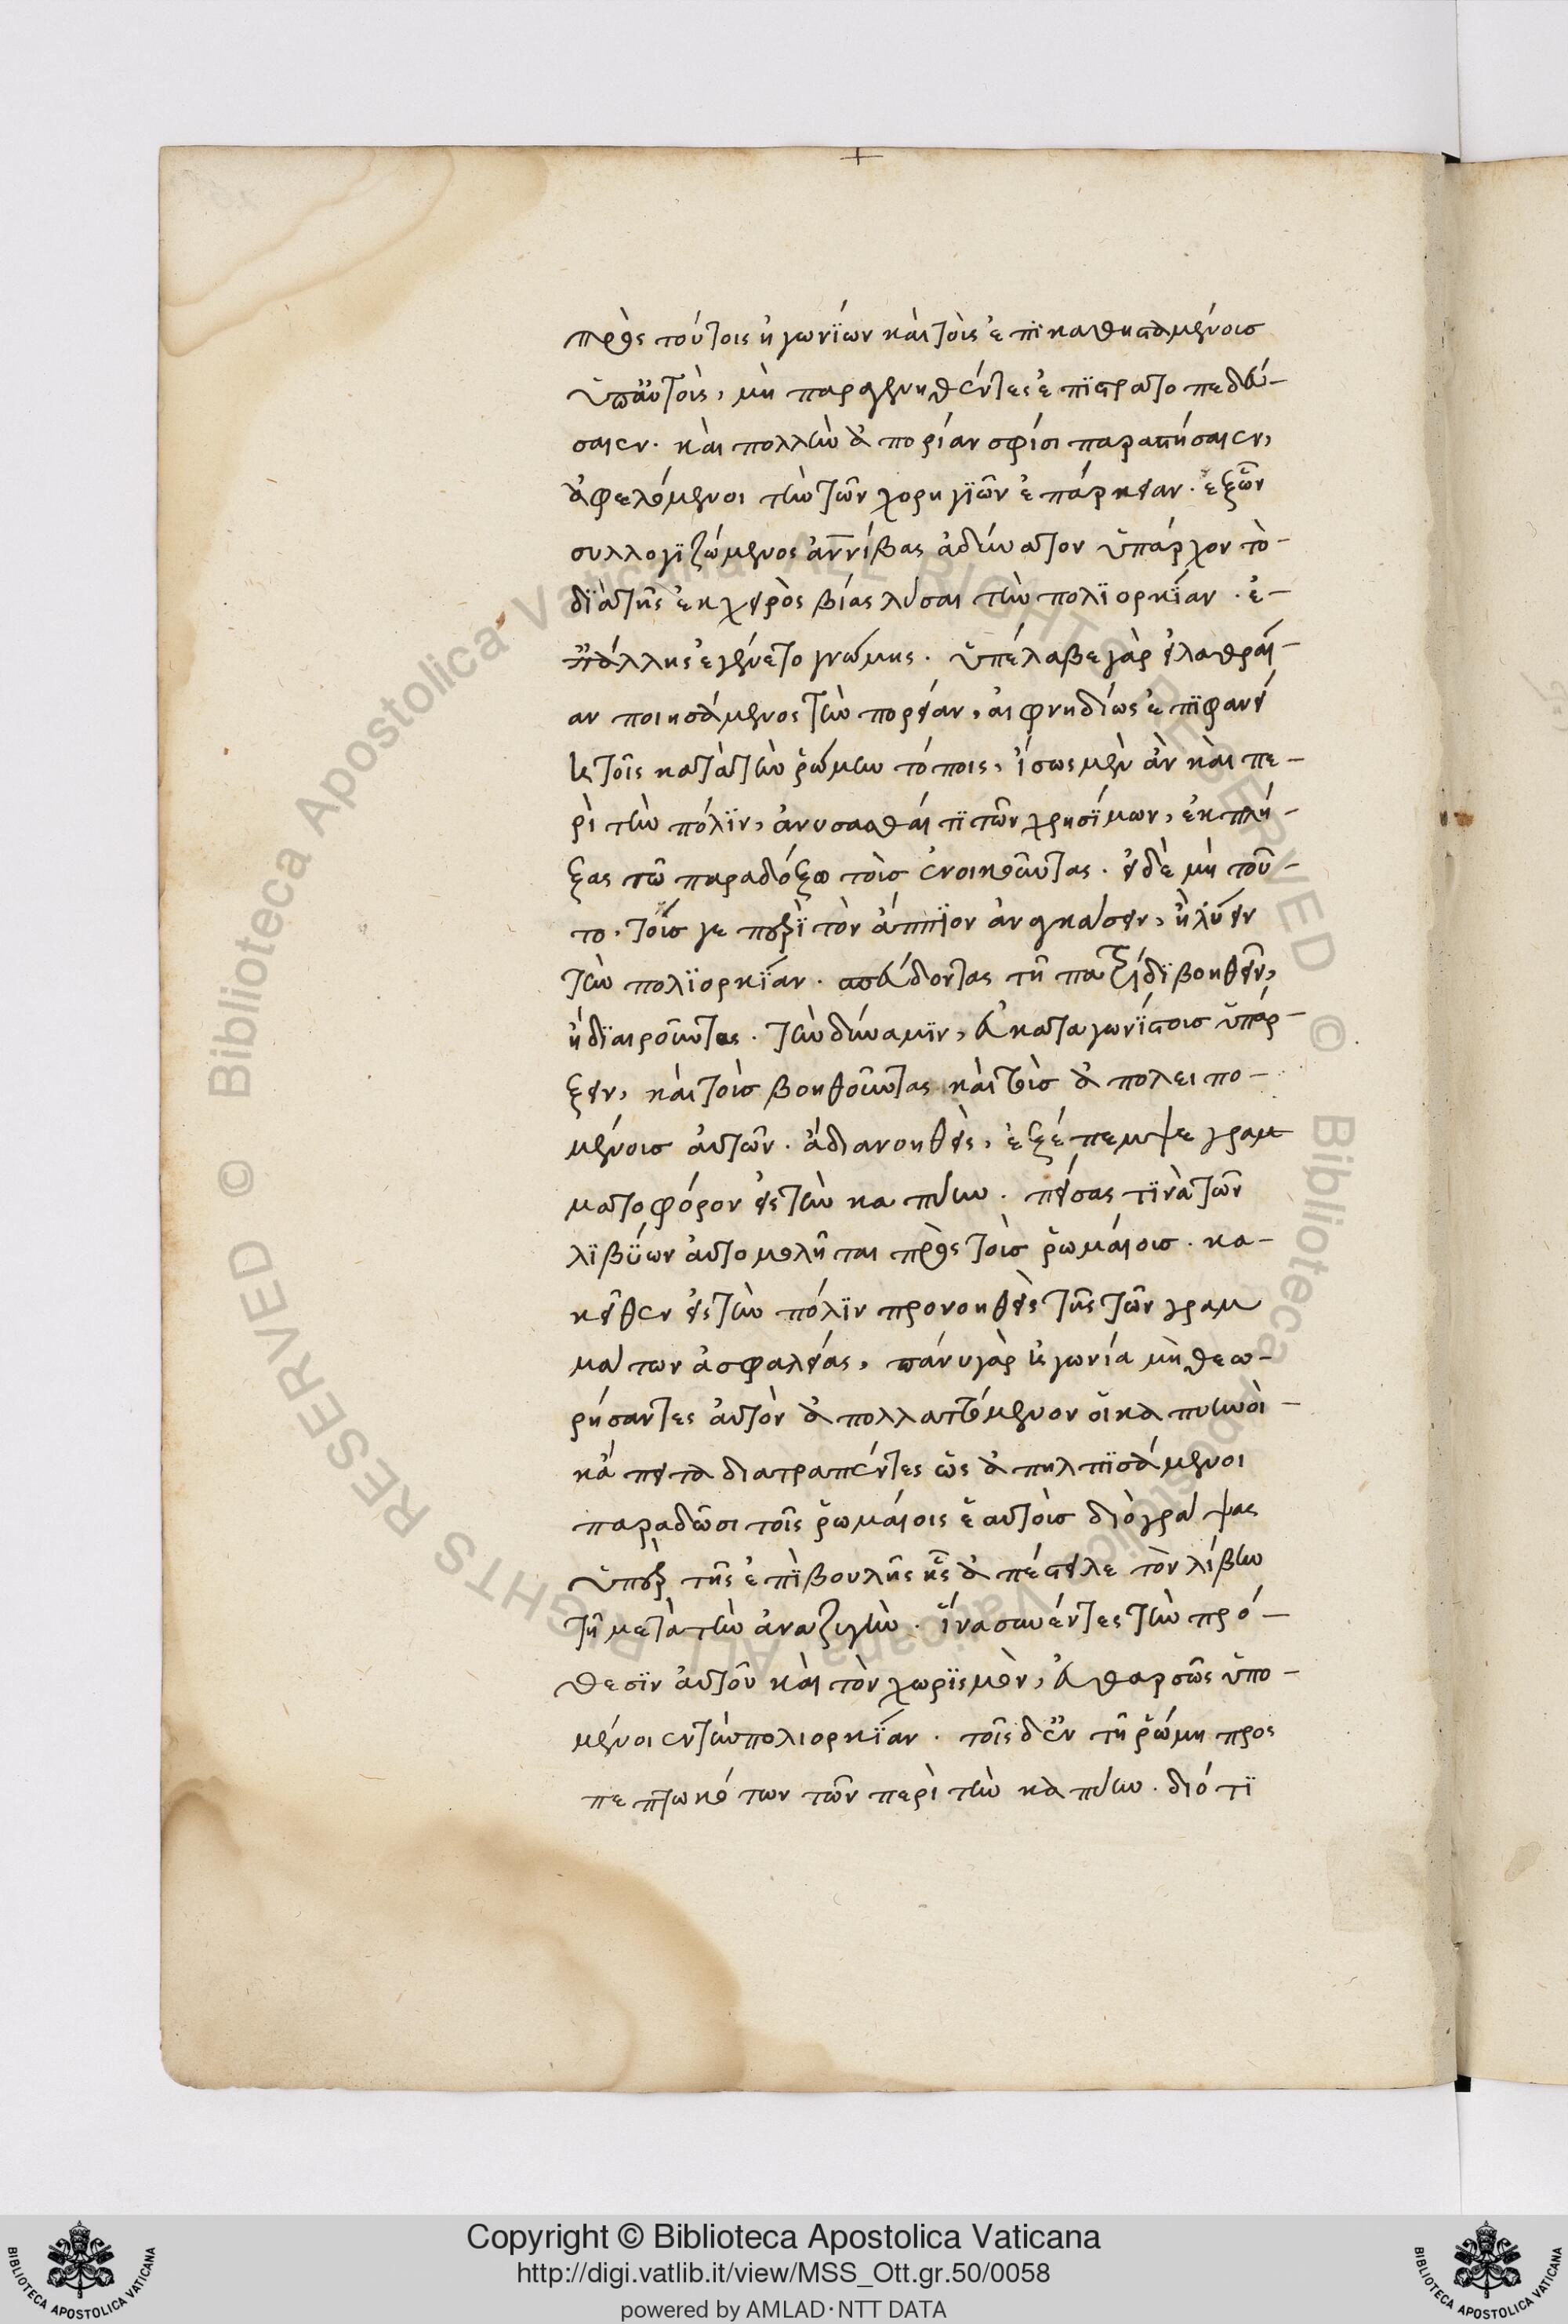 πρὸς τούτοις ἠγωνίων καὶ τοὺς ἐπικαθησαμένους
ὑπαὐτοὺς, μὴ παραγενηθέντες ἐπιστρατοπεδεύ-
σαιεν. καὶ πολλὴν ἀπορίαν σφίσι παραστήσαιεν,
ἀφελόμενοι τὴν τῶν χορηγιῶν ἐπάρκειαν. ἐξὧν
συλλογιζόμενος ἀννίβας ἀδύνατον ὑπάρχον τὸ-
διὰ τῆς ἐκ χειρὸς βίας λῦσαι τὴν πολιορκίαν. ἐ-
πἄλλης ἐγένετο γνώμης. ὑπέλαβε γὰρ ἐλαθραί-
αν ποιησάμενος τὴν πορείαν, αἰφνηδίως ἐπιφανεί
η τοῖς κατὰ τὴν ῥώμην τόποις, ἴσως μὲν ἂν καὶ πε-
ρὶ τὴν πόλιν, ἀνυσασθαί τι τῶν χρησίμων, ἐκπλή-
ξας τῶ παραδόξω τοὺς ἐνοικοῦντας. εἰ δὲ μὴ τοῦ-
το. τούς γε περὶ τὸν ἄππιον ἀναγκάσειν, ἢ λύειν
τὴν πολιορκίαν. σπεύδοντας τῇ πατρίδι βοηθεῖν,
ἢ διαιροῦντας. τὴν δύναμιν, εὐκαταγωνίστους ὑπάρ-
ξειν, καὶ τοὺς βοηθοῦντας καὶ τοὺς ἀπολειπο-
μένους αὐτῶν. ἃ διανοηθεὶς, ἐξέπεμψε γραμ
ματοφόρον εἰς τὴν καπύην. πείσας τινὰ τῶν
λιβύων αὐτομολῆσαι πρὸς τοὺς ῥωμαίους. κα-
κεῖθεν εἰς τὴν πόλιν προνοηθεὶς τῆς τῶν γραμ
μάτων ἀσφαλείας, πάνυ γὰρ ἠγωνία μὴ θεω-
ρήσαντες αὐτὸν ἀπολλαττόμενον οἱ καπυηνοὶ-
κἄπειτα διατραπέντες ὡς ἀπηλπισάμενοι
παραδῶσι τοῖς ῥωμαίοις ἑαυτοὺς διὸ γράψας
ὑπὲρ τῆς ἐπιβουλῆς ἧς ἀπέστειλε τὸν λίβυν
τῇ μετὰ τὴν ἀναζυγὴν. ἵνα συνέντες τὴν πρό-
θεσιν αὐτοῦ καὶ τὸν χωρισμὸν, εὐθαρσῶς ὑπο-
μένοιεν τὴν πολιορκίαν. τοῖς δ' ἐν τῇ ῥώμη προς
πεπτωκότων τῶν περὶ τὴν καπύην. διότι
Copyright © Biblioteca Apostolica Vaticana
http://digi.vatlib.it/view/MSS_Ott.gr.50/0058
powered by AMLAD·NTT DATA